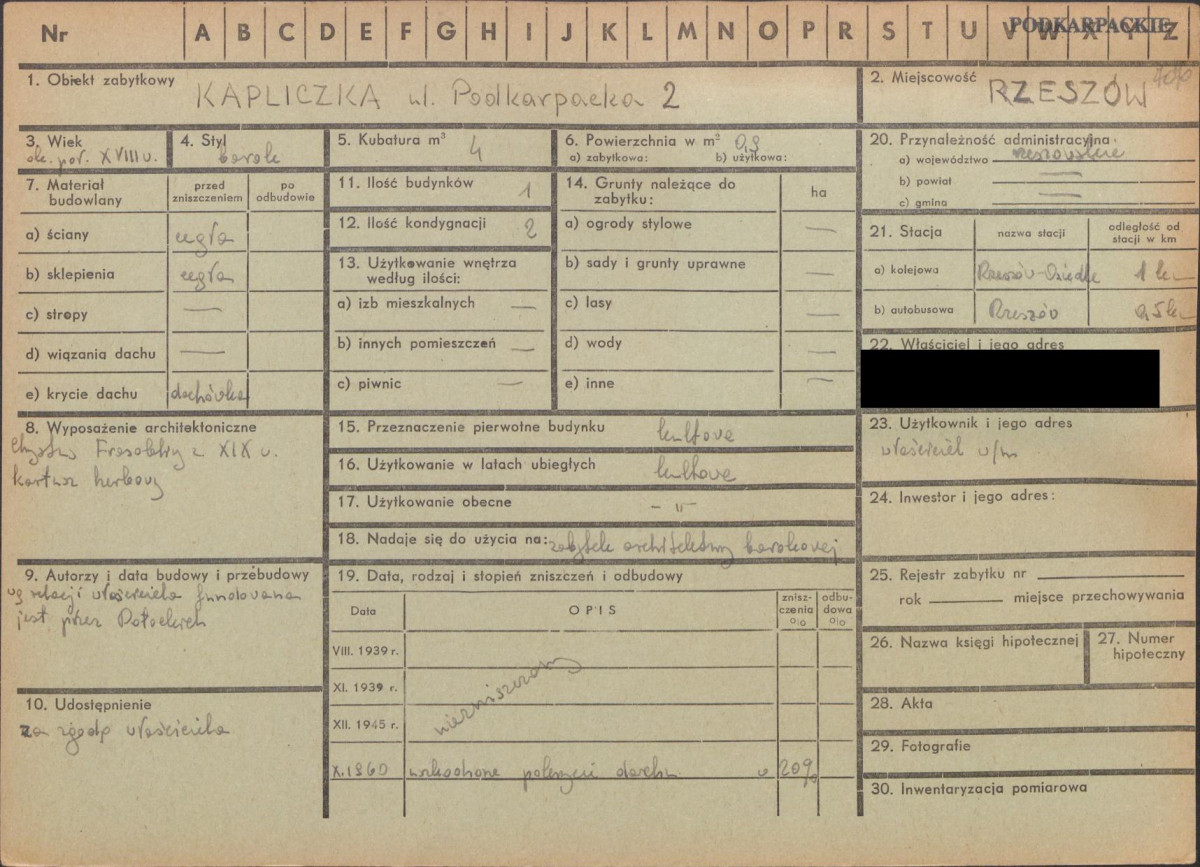 Nr A B C D E F G H I J K L M N O P R S T U V W X Y Z
PODKARPACKIE
1. Obiekt zabytkowy KAPLICZKA ul. Podkarpacka 2
2. Miejscowość RZESZÓW
3. Wiek ok. poł. XVIII w.
4. Styl barok
5. Kubatura m³ 4
6. Powierzchnia w m² 0,9
a) zabytkowa: b) użytkowa:
7. Materiał budowlany
przed zniszczeniem
po odbudowie
a) ściany cegła
b) sklepienia cegła
c) stropy —
d) wiązania dachu —
e) krycie dachu dachówka
8. Wyposażenie architektoniczne
Chrystus Frasobliwy z XIX w.
kartusz herbowy
9. Autorzy i data budowy i przebudowy
wg relacji właściciela fundowana
jest przez Potockich
10. Udostępnienie
za zgodą właściciela
11. Ilość budynków 1
12. Ilość kondygnacji 2
13. Użytkowanie wnętrza
według ilości:
a) izb mieszkalnych —
b) innych pomieszczeń —
c) piwnic —
14. Grunty należące do
zabytku:
ha
a) ogrody stylowe —
b) sady i grunty uprawne —
c) lasy —
d) wody —
e) inne —
15. Przeznaczenie pierwotne budynku kultowe
16. Użytkowanie w latach ubiegłych kultowe
17. Użytkowanie obecne - " -
18. Nadaje się do użycia na: zabytek architektury barokowej
19. Data, rodzaj i stopień zniszczeń i odbudowy
Data
OPIS
znisz-
czenia
%
odbu-
dowa
%
VIII. 1939 r.
XI. 1939 r.
XII. 1945 r.
niezniszczony
X.1960 uszkodzone pokrycie dachu w 20%
20. Przynależność administracyjna:
a) województwo rzeszowskie
b) powiat —
c) gmina —
21. Stacja
nazwa stacji
odległość od
stacji w km
a) kolejowa Rzeszów-Osiedle 1 km
b) autobusowa Rzeszów 0,5 km
22. Właściciel i jego adres
23. Użytkownik i jego adres
właściciel j/w
24. Inwestor i jego adres:
25. Rejestr zabytku nr
rok miejsce przechowywania
26. Nazwa księgi hipotecznej
27. Numer
hipoteczny
28. Akta
29. Fotografie
30. Inwentaryzacja pomiarowa